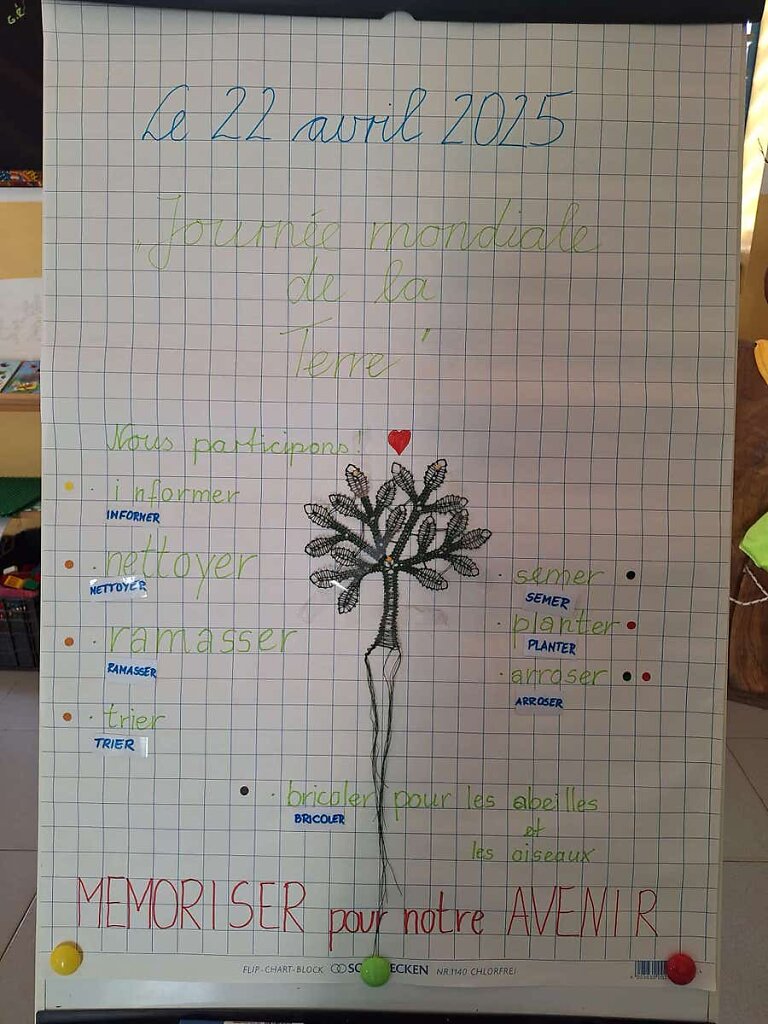 Le 22 avril 2025
"Journée mondiale
de la
Terre"
Nous participons!
· informer
INFORMER
· nettoyer
NETTOYER
· ramasser
RAMASSER
· trier
TRIER
· semer
SEMER
· planter
PLANTER
· arroser
ARROSER
· bricoler pour les abeilles
BRICOLER
et
les oiseaux
MEMORISER pour notre AVENIR
FLIP-CHART-BLOCK NR.1140 CHLORFREI